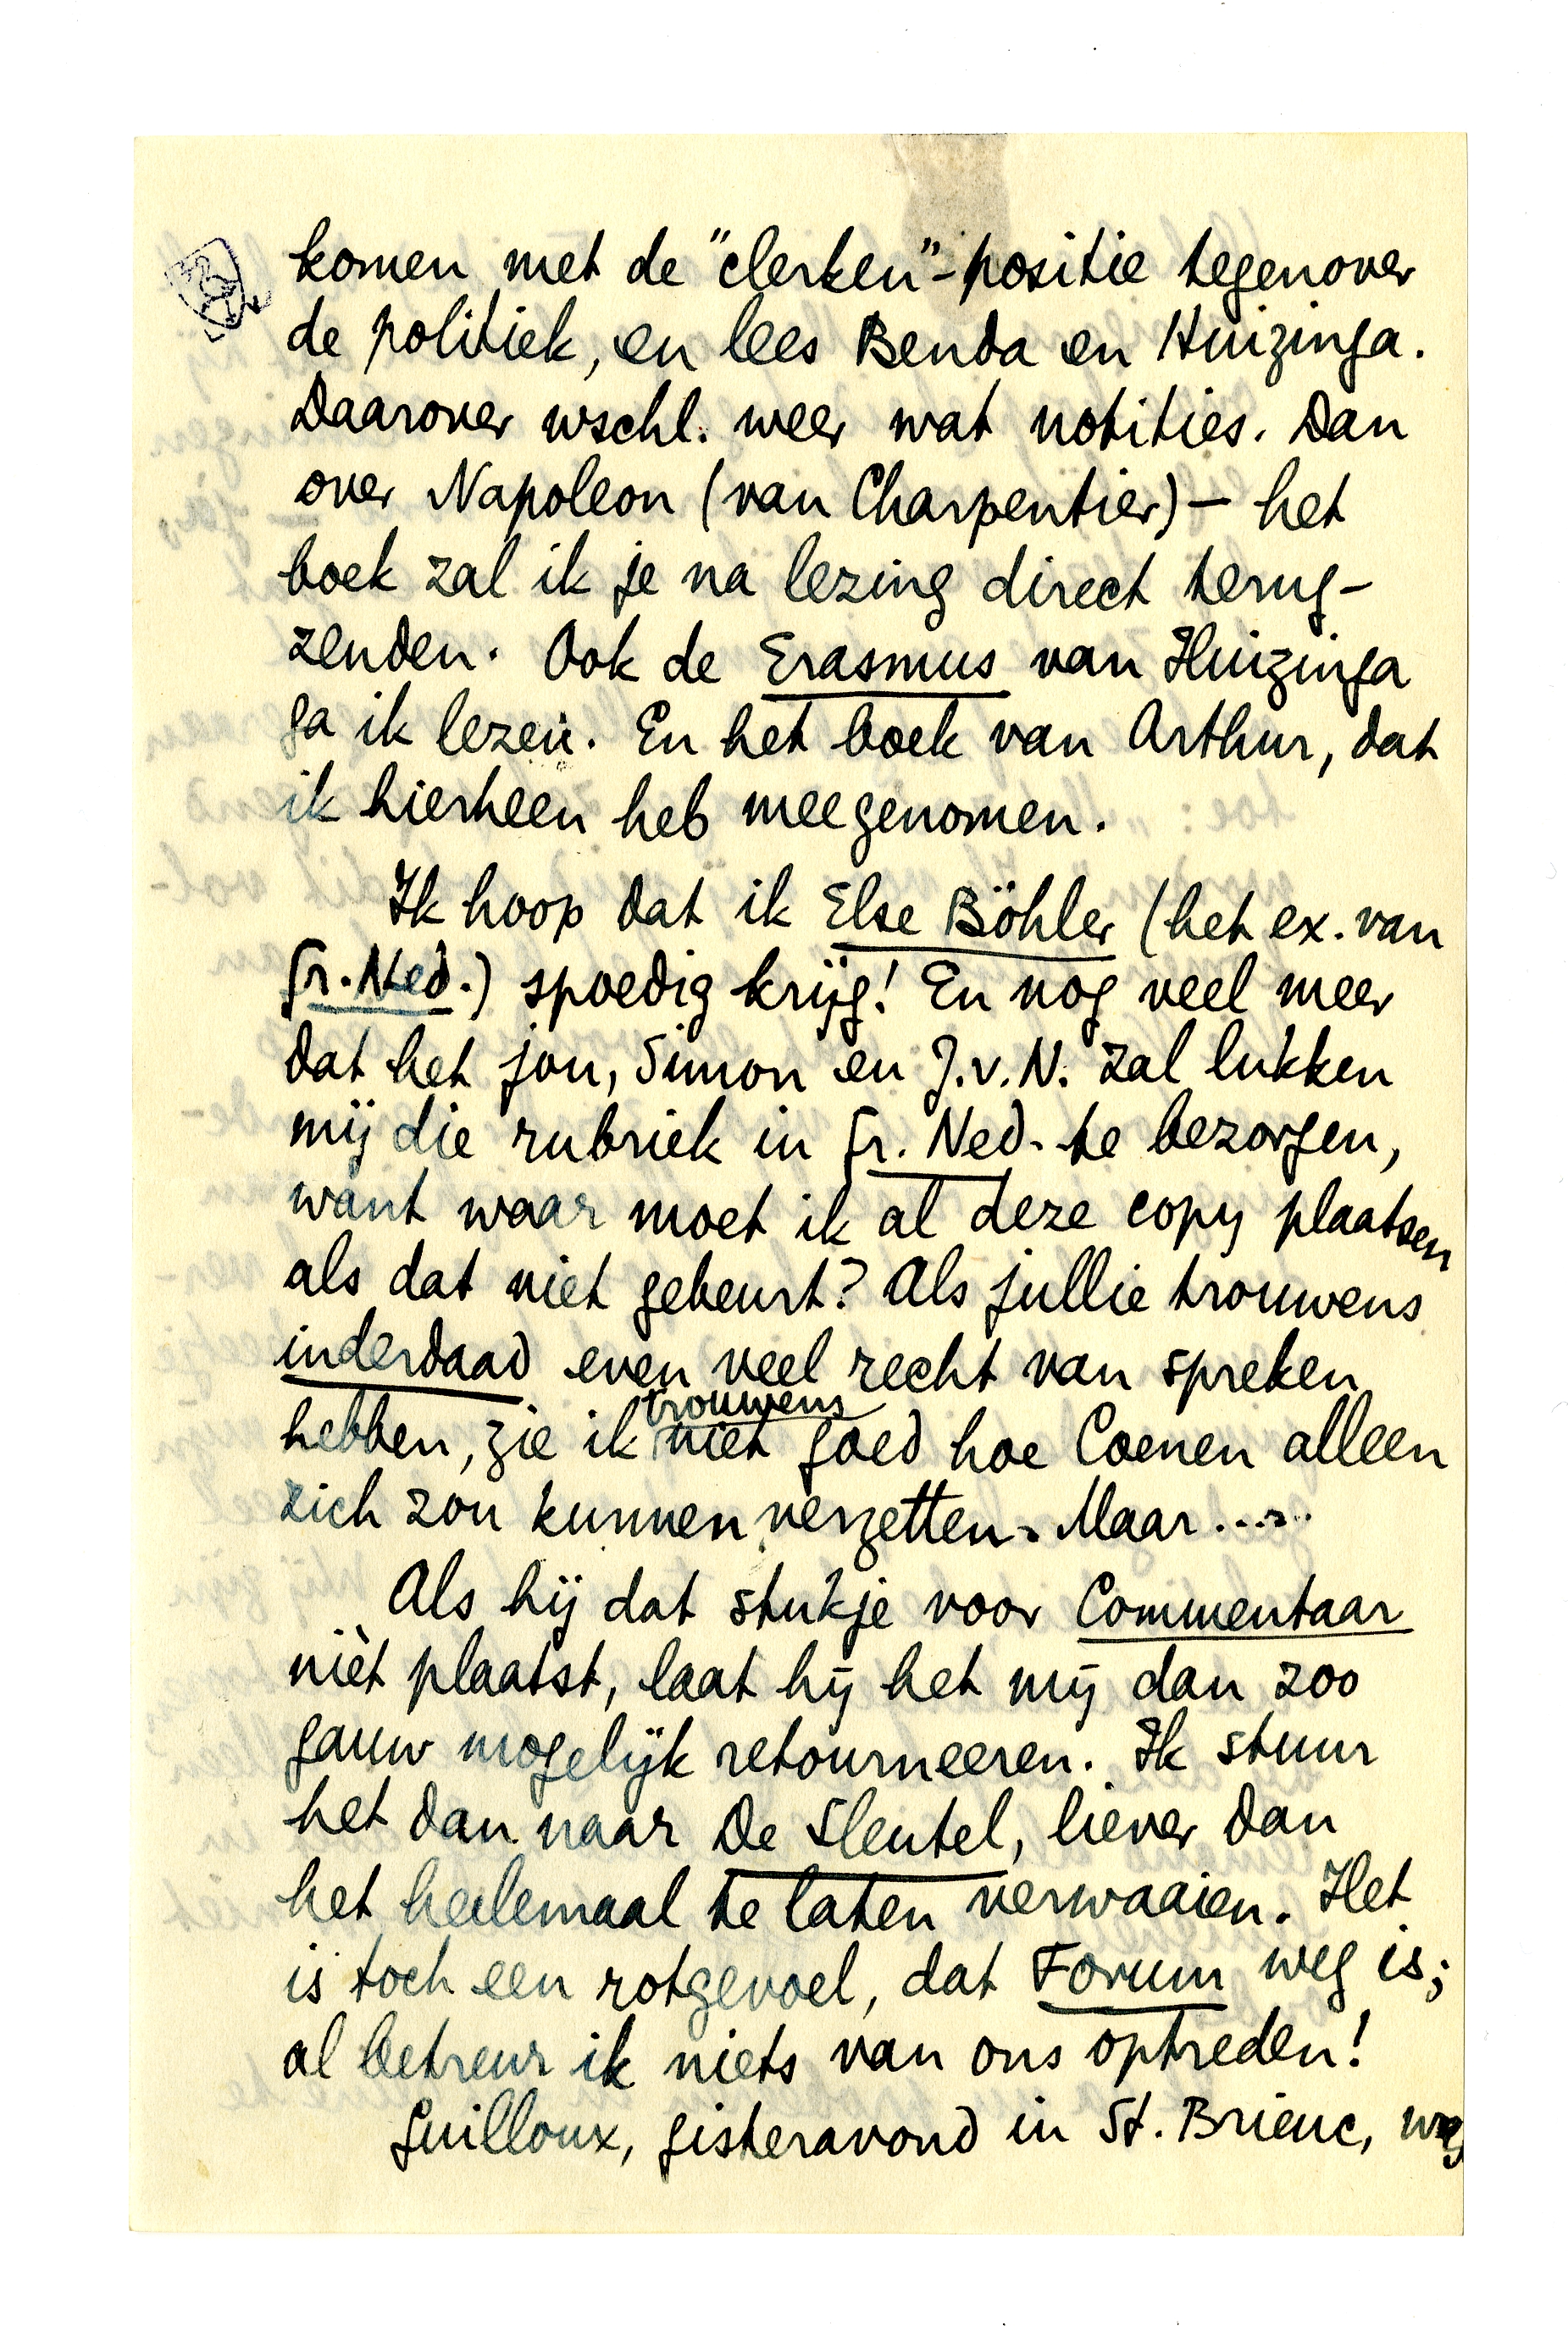 komen met de "clerken"-positie tegenover
de politiek, en lees Benda en Huizinga.
Daarover wschl. weer wat notities. Dan
over Napoleon (van Charpentier) — het
boek zal ik je na lezing direct terug-
zenden. Ook de Erasmus van Huizinga
ga ik lezen. En het boek van Arthur, dat
ik hierheen heb meegenomen.
Ik hoop dat ik Else Böhler (het ex. van
Gr. Ned.) spoedig krijg! En nog veel meer
dat het jou, Simon en J.v.N. zal lukken
mij die rubriek in Gr. Ned. te bezorgen,
want waar moet ik al deze copy plaatsen
als dat niet gebeurt? Als jullie trouwens
inderdaad even veel recht van spreken
hebben, zie ik trouwens niet goed hoe Coenen alleen
zich zou kunnen verzetten. Maar.....
Als hij dat stukje voor Commentaar
nièt plaatst, laat hij het mij dan zoo
gauw mogelijk retourneeren. Ik stuur
het dan naar De Sleutel, liever dan
het heelemaal te laten verwaaien. Het
is toch een rotgevoel, dat Forum weg is;
al betreur ik niets van ons optreden!
Guilloux, gisteravond in St. Brieuc,